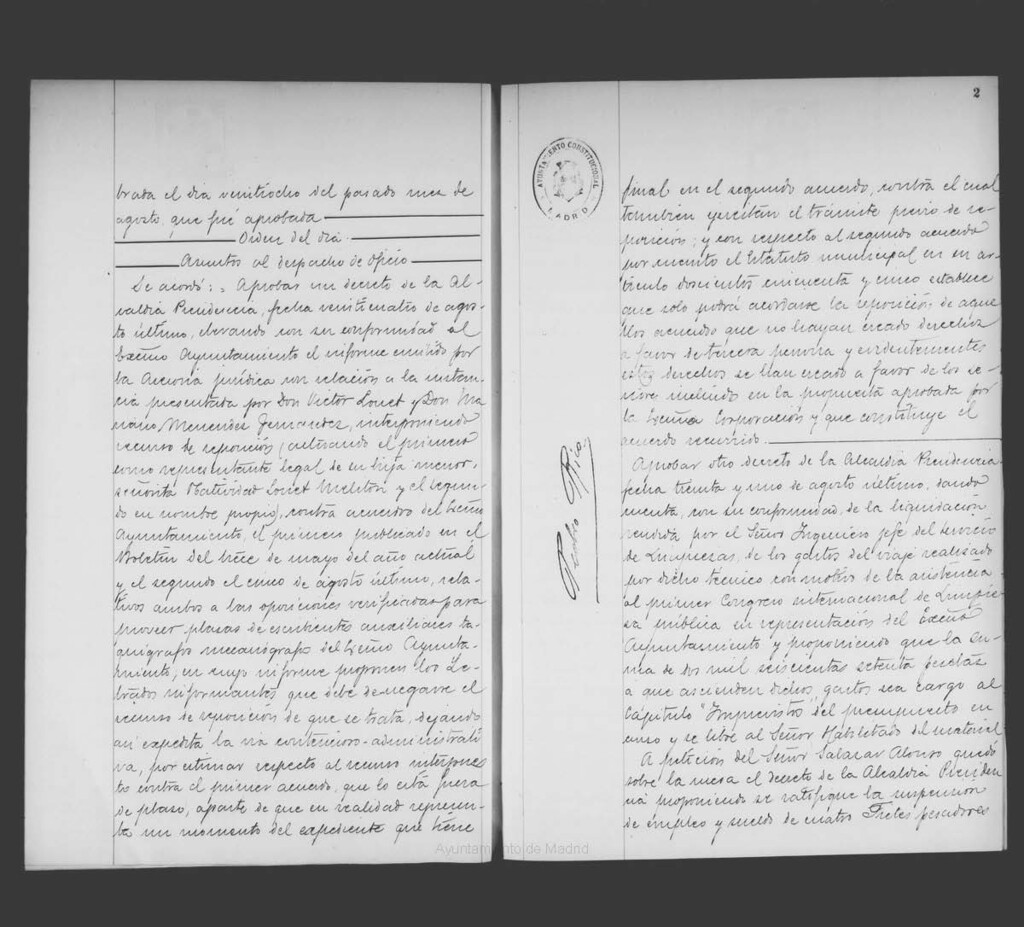 brada el dia veintiocho del pasado mes de
agosto que fué aprobada
Orden del dia.
Asuntos al despacho de oficio
Se acordó: = Aprobar un decreto de la Al-
caldia Presidencia, fecha veinticuatro de agos-
to último, elevando con su conformidad al
Excmo Ayuntamiento el informe emitido por
la Asesoria jurídica con relación a la instan-
cia presentada por Don Victor Lonet y Don Ma-
riano Menendez Fernandez, interponiendo
recurso de reposición (actuando el primero
como representante legal de su hija menor,
señorita Natividad Lonet Meliton y el segun-
do en nombre propio), contra acuerdos del Excmo
Ayuntamiento, el primero publicado en el
Boletin del trece de mayo del año actual
y el segundo el cinco de agosto último, rela-
tivos ambos a las oposiciones verificadas para
proveer plazas de escribientes auxiliares ta-
quigrafos mecanografos del Excmo Ayunta-
miento, en cuyo informe proponen los Le-
trados informantes que debe denegarse el
recurso de reposición de que se trata, dejando
asi expedita la via contencioso-administrati-
va, por estimar respecto al recurso interpues-
to contra el primer acuerdo, que lo está fuera
de plazo, aparte de que en realidad represen-
ta un momento del expediente que tiene
2
AYUNTAMIENTO CONSTITUCIONAL
MADRID
Pedro Rico
final en el segundo acuerdo, contra el cual
tambien ejercitan el trámite previo de re-
posición; y con respecto al segundo acuerdo
por cuanto el Estatuto municipal en su ar-
ticulo doscientos cincuenta y cinco establece
que solo podrá acordarse la reposición de aque-
llos acuerdos que no hayan creado derechos
a favor de tercera persona y evidentemente
estos derechos se han creado a favor de los se-
ñores incluidos en la propuesta aprobada por
la Excma Corporación y que constituye el
acuerdo recurrido.
Aprobar otro decreto de la Alcaldia Presidencia
fecha treinta y uno de agosto último, dando
cuenta, con su conformidad, de la liquidación
rendida por el Señor Ingeniero jefe del servicio
de Limpiezas, de los gastos del viaje realizado
por dicho técnico con motivo de la asistencia
al primer Congreso internacional de Limpie-
za pública en representación del Excmo
Ayuntamiento y proponiendo que la su-
ma de dos mil seiscientas setenta pesetas
a que ascienden dichos gastos sea cargo al
Capitulo "Imprevistos" del presupuesto en
curso y se libre al Señor Habilitado del material
A petición del Señor Salazar Alonso quedó
sobre la mesa el decreto de la Alcaldia Presiden
cia proponiendo se ratifique la suspensión
de empleo y sueldo de cuatro Fieles pesadores
Ayuntamiento de Madrid